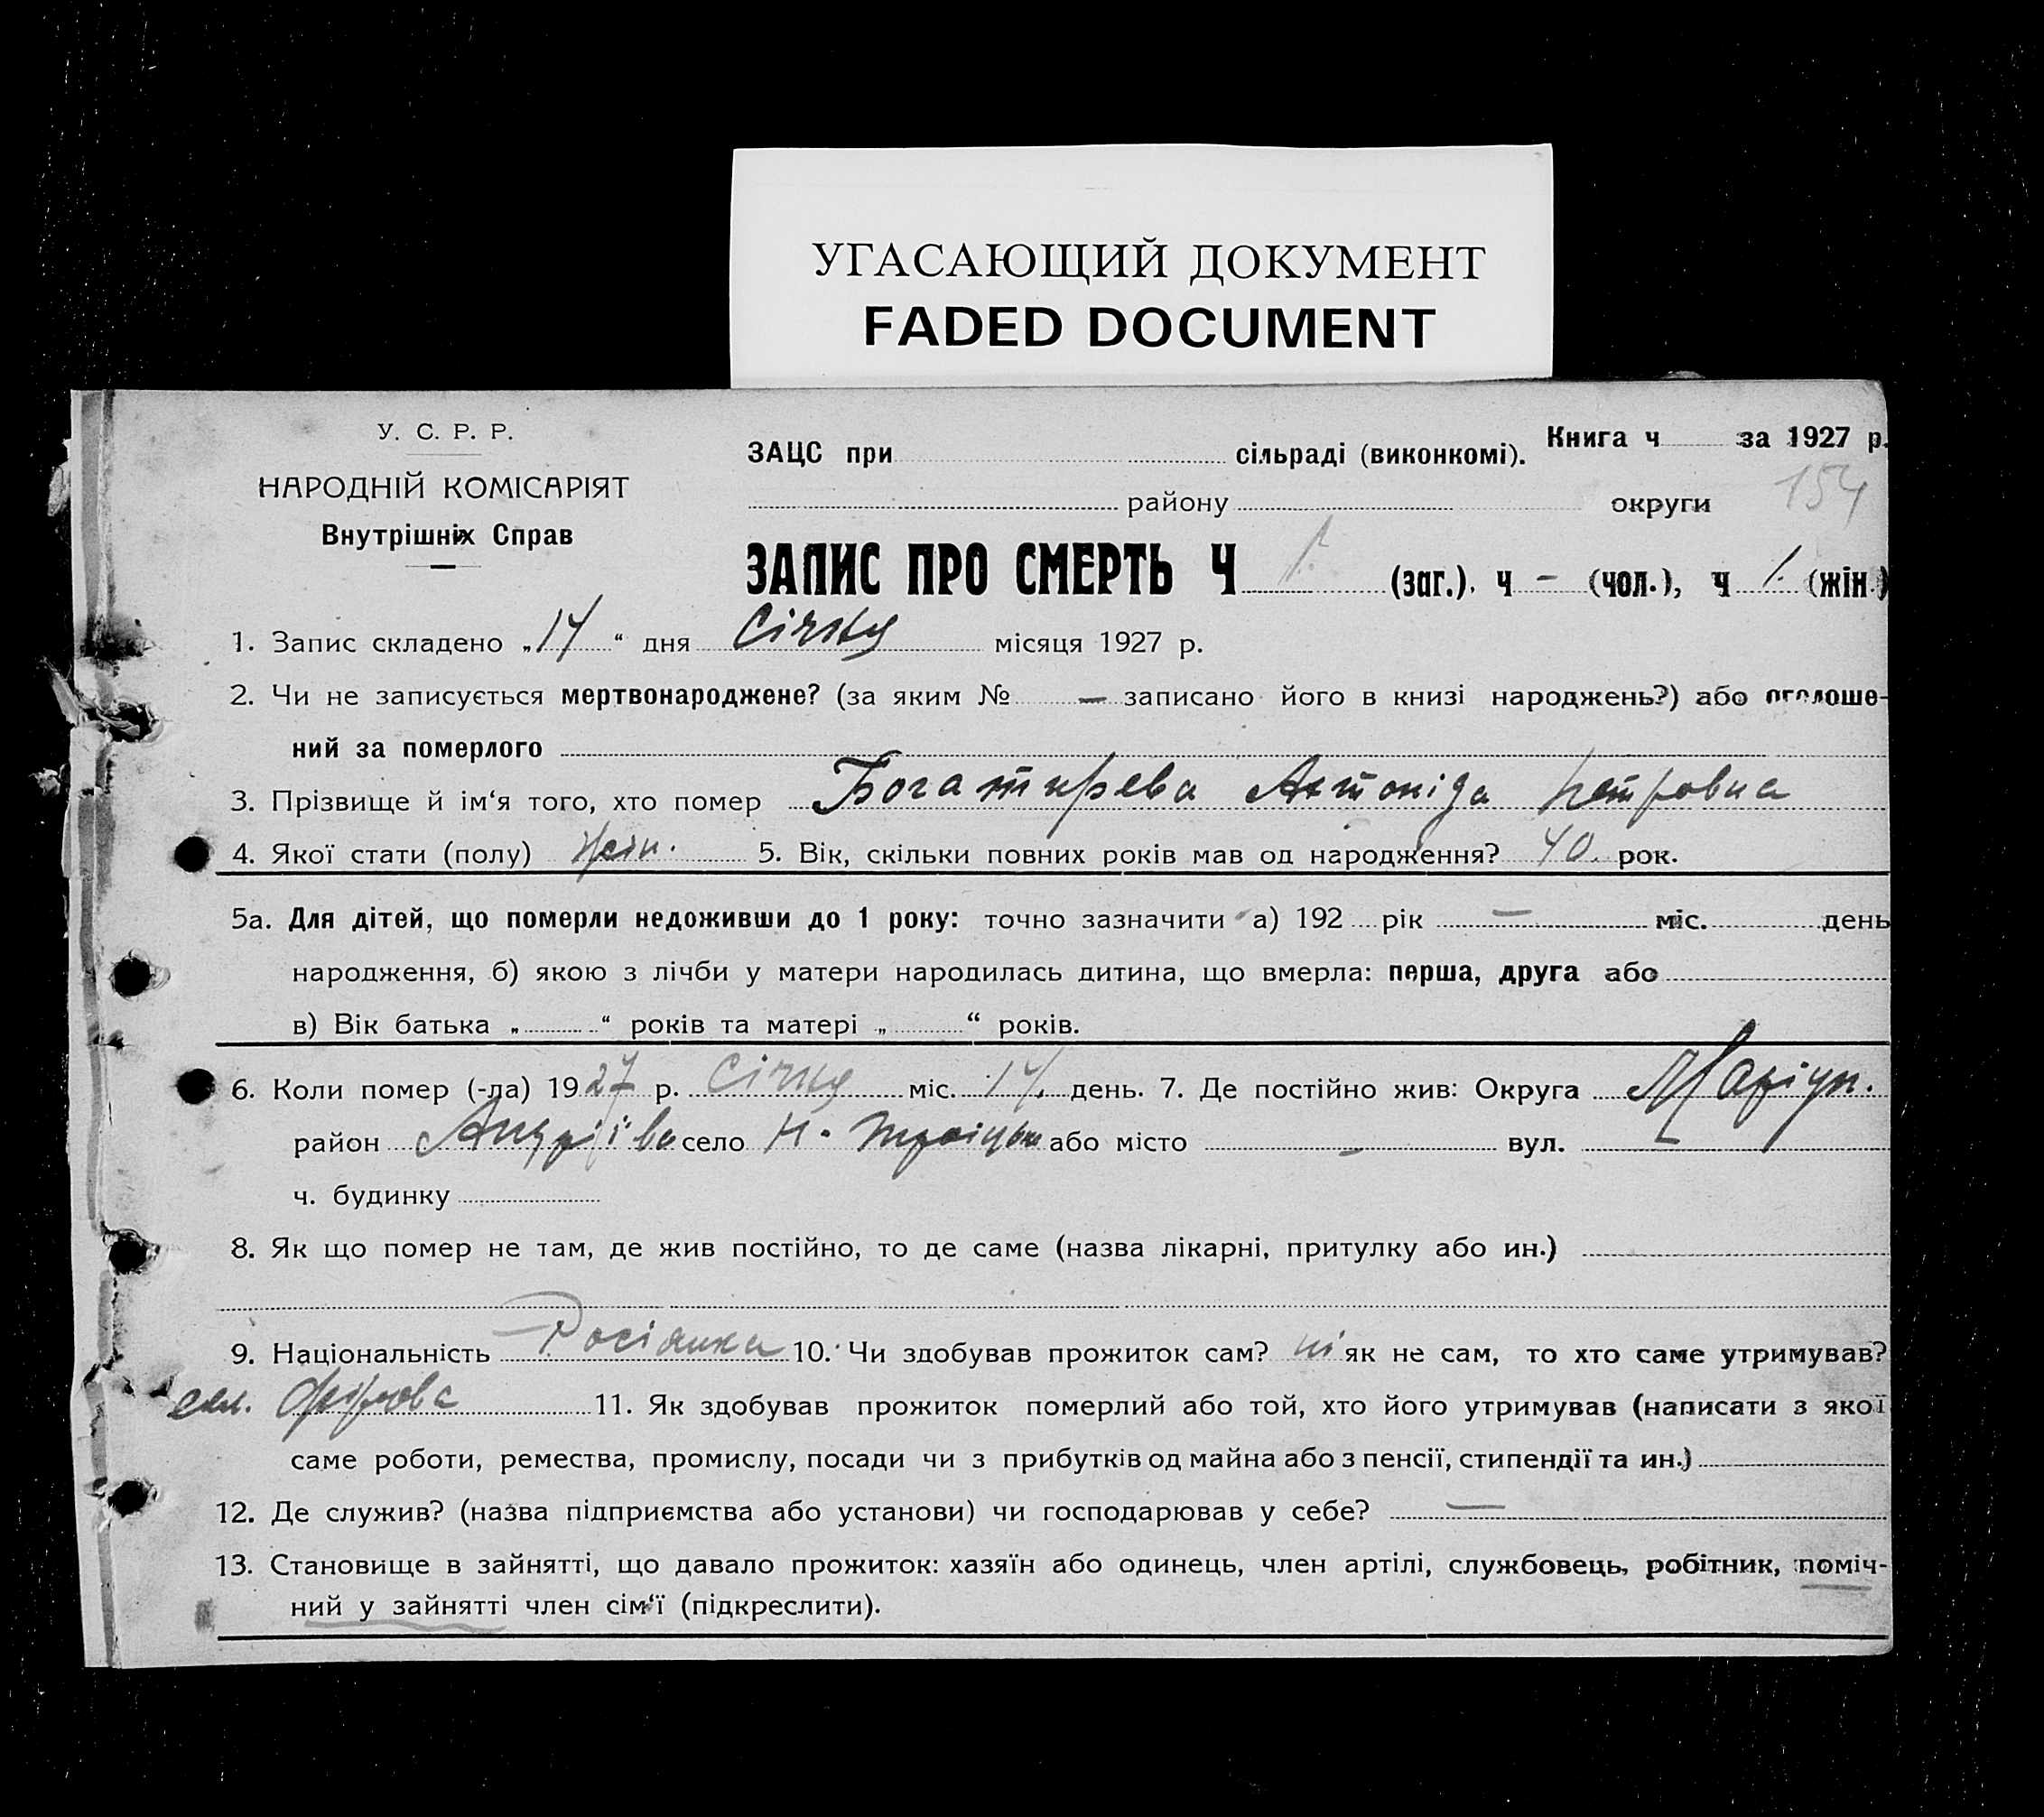 УГАСАЮЩИЙ ДОКУМЕНТ
FADED DOCUMENT
У. С. Р. Р.
НАРОДНІЙ КОМІСАРІЯТ
Внутрішніх Справ
Книга ч за 1927 р.
ЗАЦС при сільраді (виконкомі).
154
району округи
ЗАПИС ПРО СМЕРТЬ Ч 1. (заг.), ч – (чол.), ч 1. (жін.)
1. Запис складено „14“ дня Січня місяця 1927 р.
2. Чи не записується мертвонароджене? (за яким № – записано його в книзі народжень?) або оголоше-
ний за померлого
3. Прізвище й ім‘я того, хто помер Богатирева Антоніда Петровна
4. Якої стати (полу) жін. 5. Вік, скільки повних років мав од народження? 40. рок.
5а. Для дітей, що померли недоживши до 1 року: точно зазначити а) 192 рік – міс. день
народження, б) якою з лічби у матери народилась дитина, що вмерла: перша, друга або
в) Вік батька „ “ років та матері „ “ років.
6. Коли помер (-ла) 1927 р. Січня міс. 14. день. 7. Де постійно жив: Округа Маріуп.
район Андріїва село Н. Троіцьк або місто – вул.
ч. будинку
8. Як що помер не там, де жив постійно, то де саме (назва лікарні, притулку або ин.)
9. Національність Росіянка 10. Чи здобував прожиток сам? ні як не сам, то хто саме утримував?
11. Як здобував прожиток померлий або той, хто його утримував (написати з якої
саме роботи, ремества, промислу, посади чи з прибутків од майна або з пенсії, стипендії та ин.)
12. Де служив? (назва підприємства або установи) чи господарював у себе? –
13. Становище в зайнятті, що давало прожиток: хазяїн або одинець, член артілі, службовець, робітник, поміч-
ний у зайнятті член сім‘ї (підкреслити).